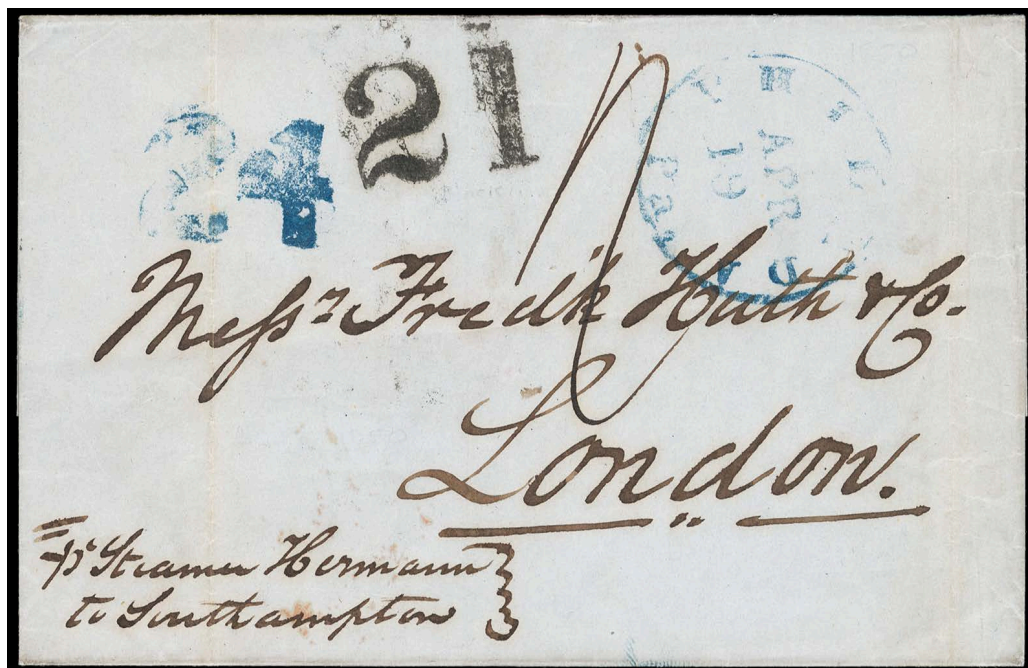 24
21
PHILADA
APR
19
Pa.
Messrs. Fredk Huth & Co.
London.
pr Steamer Hermann
to Southampton